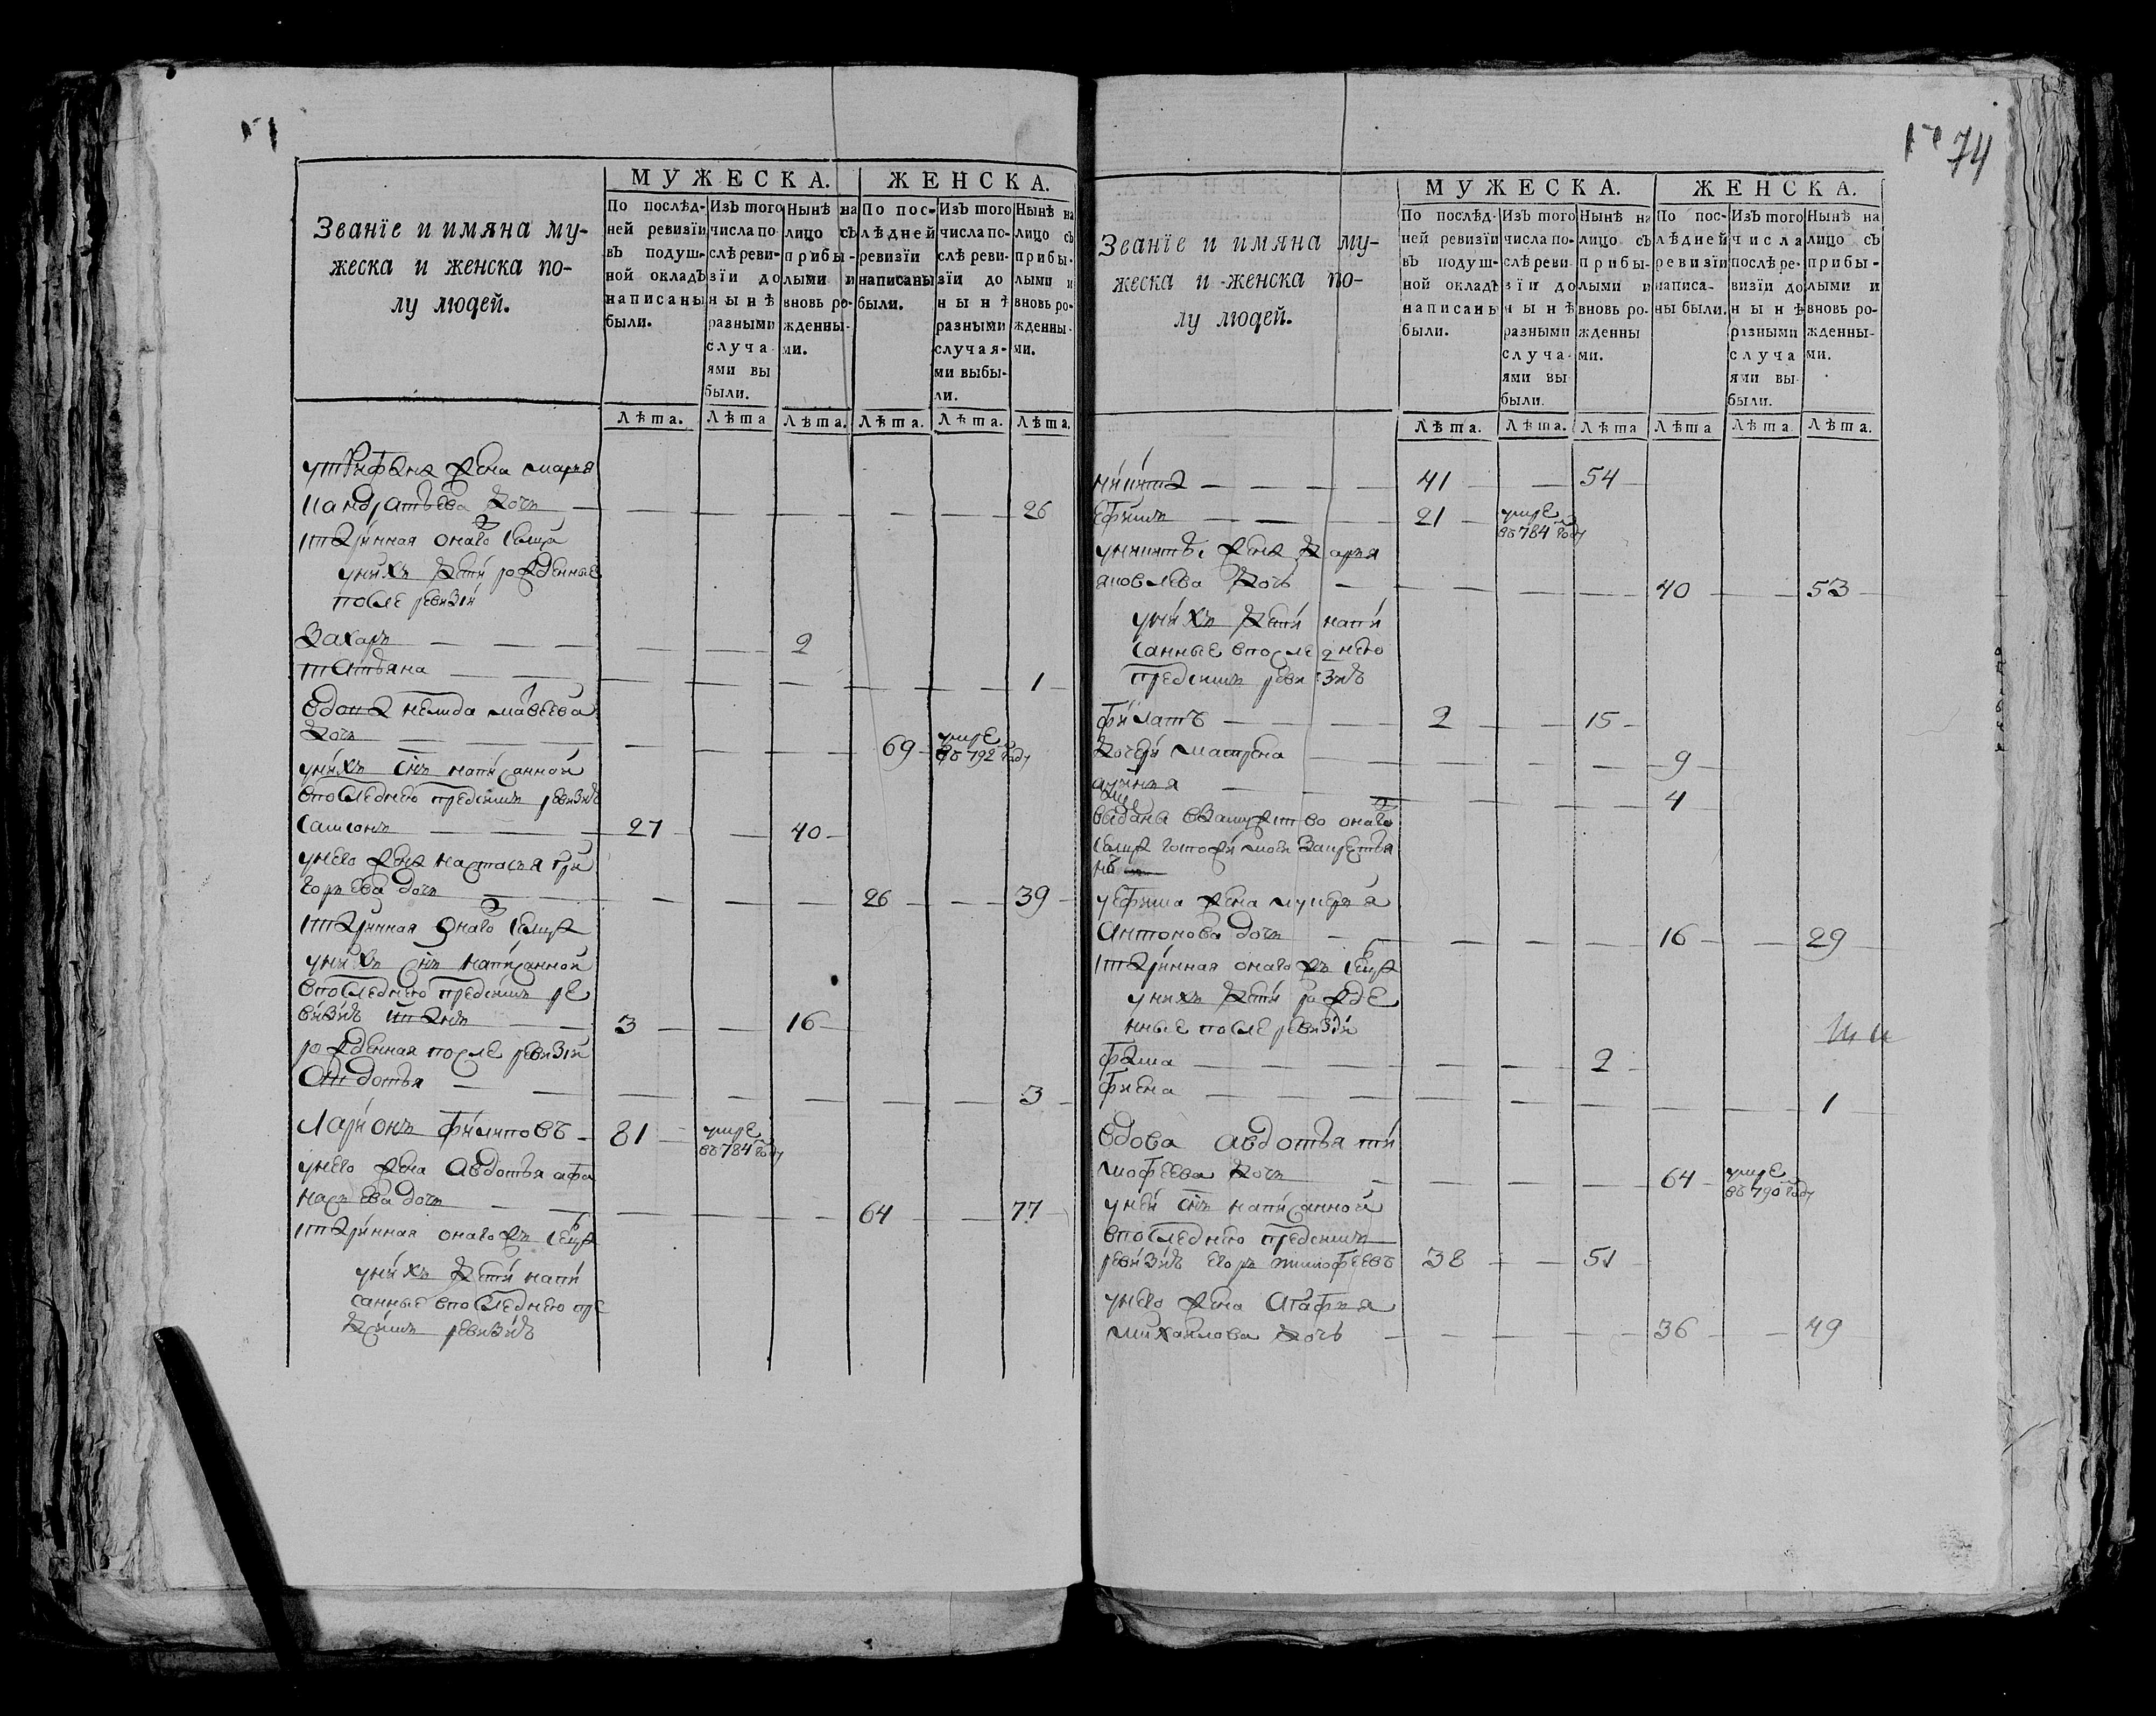 74
Званїе и имяна му-
жеска и женска по-
лу людей.
МУЖЕСКА.
ЖЕНСКА.
По послѣд-
ней ревизїи
въ подуш-
ной окладъ
написаны
были.
Изъ того
числа по
слѣ реви-
зїи до
нынѣ
разными
случа-
ями вы
были.
Нынѣ на
лицо съ
прибы-
лыми и
вновь ро-
жденны-
ми.
По пос-
лѣдней
ревизїи
написаны
были.
Изъ того
числа по-
слѣ реви-
зїи до
нынѣ
разными
случая-
ми выбы-
ли.
Нынѣ на
лицо съ
прибы-
лыми и
вновь ро-
жденны-
ми.
Лѣта. Лѣта Лѣта. Лѣта. Лѣта. Лѣта.
утрифана жена марья
кандратьева дочь 26
старинная онаго села
уних дети рожденные
после ревизии
Захаръ 2
татьяна 1
вдова дочь 69 умре в 792 году
уних снъ написанной
впоследнею пред сим ревизиѣ
самсонъ 27 40
унево жена настасья гри
горьева дочь 26 39
старинная онаго села
уних снъ написанной
впоследнею пред сим ре
визиѣ 3 16
рожденная после ревизии
Авдотья 3
Ларионъ филиповъ 81 умре въ 784 году
унево жена Авдотья афа
насьева дочь 64 77
старинная онаго ж села
уних дети напи
санные впоследнею пре
д сим ревизиѣ
Званїе и имяна му-
жеска и женска по-
лу людей.
МУЖЕСКА.
ЖЕНСКА.
По послѣд-
ней ревизїи
въ подуш-
ной окладъ
написаны
были.
Изъ того
числа по-
слѣ реви-
зїи до
нынѣ
разными
случа-
ями вы
были.
Нынѣ на
лицо съ
прибы-
лыми и
вновь ро-
жденны
ми.
По пос-
лѣдней
ревизїи
написа-
ны были.
Изъ того
числа
послѣ ре-
визїи до
нынѣ
разными
случа
ями вы-
были.
Нынѣ на
лицо съ
прибы-
лыми и
вновь ро-
жденны-
ми.
Лѣта. Лѣта. Лѣта Лѣта Лѣта Лѣта.
никита 41 54
Ефимъ 21 умре въ 784 году
уникиты жена дарья
яковлева дочь 40 53
уних дети напи
санные впоследнею
пред сим ревизиѣ
филатъ 2 15
дочери матрена 9
4
выданы взамужство онаго
уефима жена лукерья
Антонова дочь 16 29
старинная онаго ж села
уних дети рожде
нные после ревизии
фома 2
фиена 1
вдова Авдотья ти
мофеева дочь 64 умре въ 790 году
уней снъ написанной
впоследнею пред сим
ревизиѣ егоръ тимофеевъ 38 51
унево жена Агафья
михайлова дочь 36 49